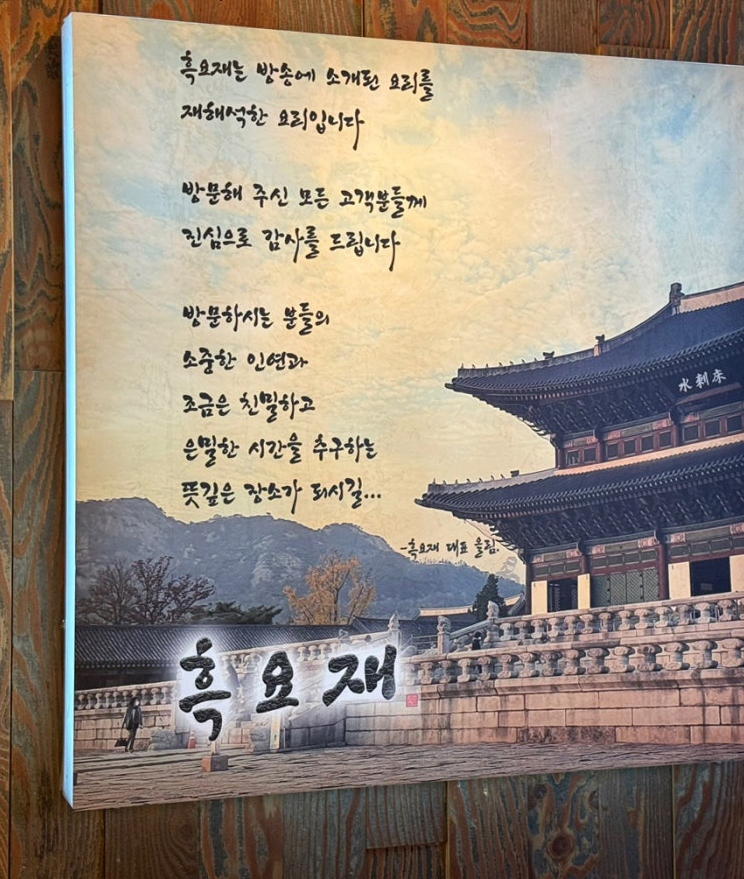 흑요재는 방송에 소개된 요리를
재해석한 요리입니다
방문해 주신 모든 고객분들께
진심으로 감사를 드립니다
방문하시는 분들의
소중한 인연과
조금은 친밀하고
은밀한 시간을 추구하는
뜻깊은 장소가 되시길...
-흑요재 대표 올림.
水剌床
흑요재